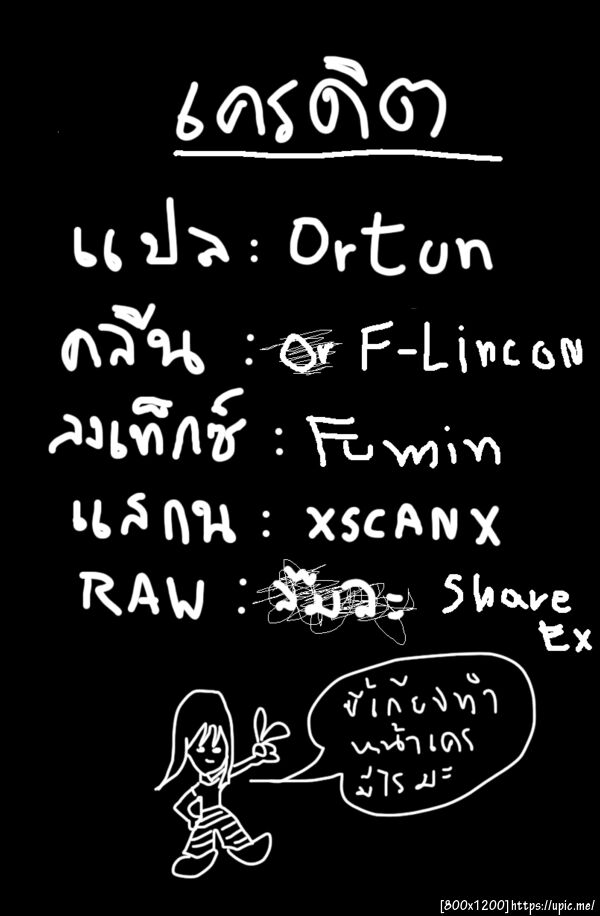 เครดิต
แปล : Ortun
คลีน : Or F-Lincon
ลงเท็กซ์ : Fumin
แสกน : XSCANX
RAW : Share
Ex
ขี้เกียงทำ
หน้าเคร
มีไรมะ
[800x1200]https://upic.me/